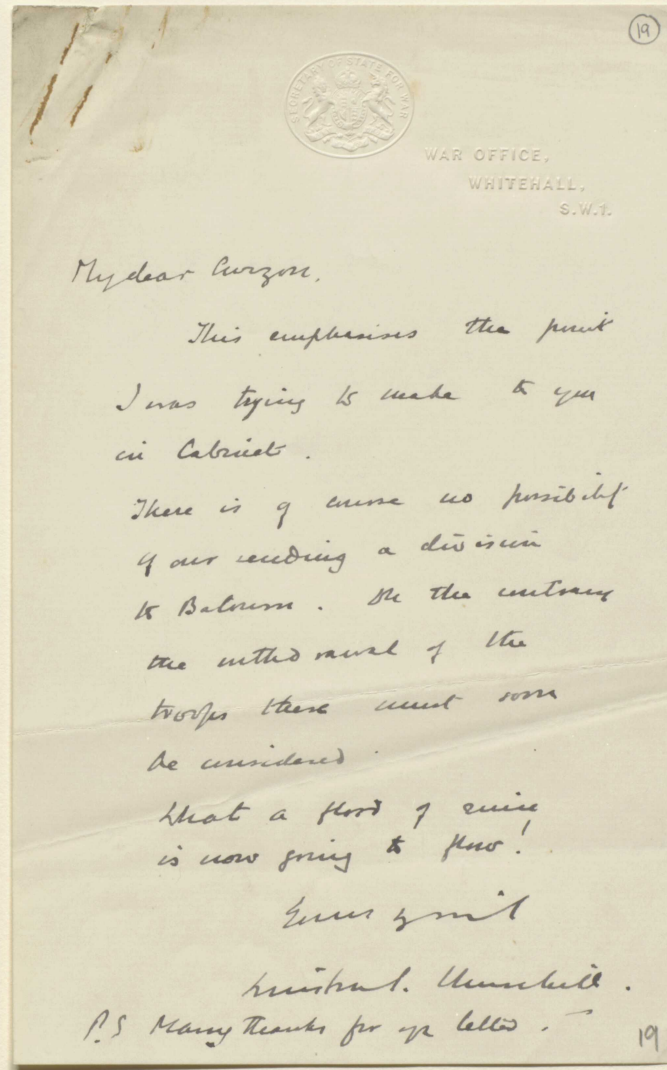 19
SECRETARY OF STATE FOR WAR
WAR OFFICE,
WHITEHALL,
S.W.1.
My dear Curzon,
This emphasises the point
I was trying to make to you
in Cabinet.
There is of course no possibility
of our sending a division
to Batoum. On the contrary
the withdrawal of the
troops there must soon
be considered.
What a flood of ruin
is now going to flow!
Yours
Winston S. Churchill.
P.S Many thanks for yr letter.
19